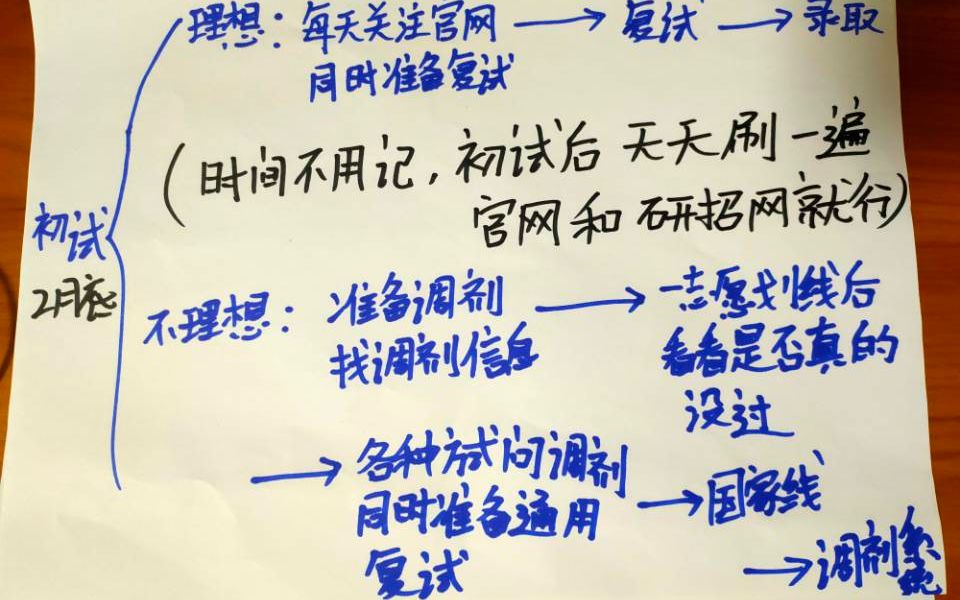 理想：每天关注官网 → 复试 → 录取
同时准备复试
（时间不用记，初试后天天刷一遍
官网和研招网就行）
初试
2月底
不理想：准备调剂 → 一志愿划线后
找调剂信息 看看是否真的
没过
→ 各种方式问调剂
同时准备通用 → 国家线
复试 → 调剂系统